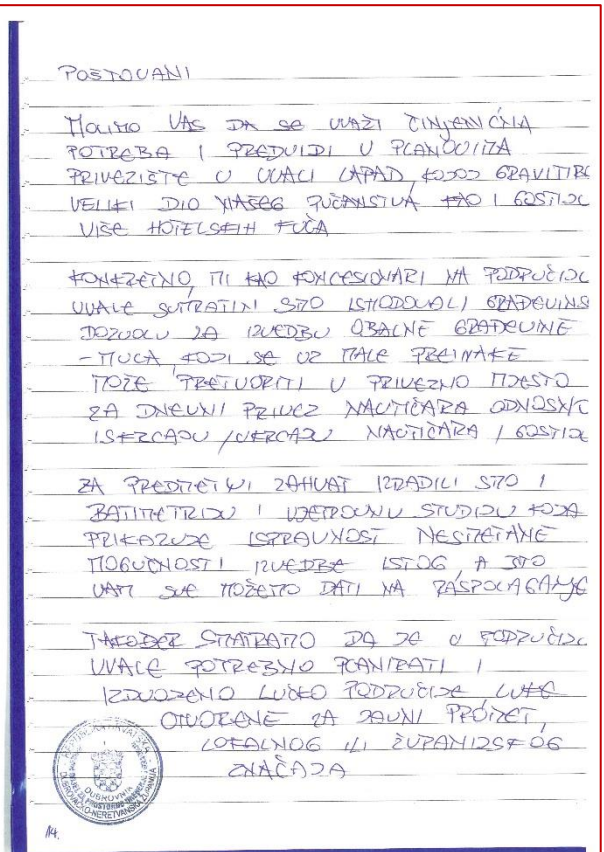 POŠTOVANI
MOLIMO VAS DA SE UVAŽI ČINJENIČNA
POTREBA I PREDVIDI U PLANOVIMA
PRIVEZIŠTE U UVALI LAPAD, KOJOJ GRAVITIRA
VELIKI DIO NAŠEG PUČANSTVA KAO I GOSTIJU
VIŠE HOTELSKIH KUĆA
KONKRETNO, MI KAO KONCESIONARI NA PODRUČJU
UVALE SUMRATIN SMO ISHODOVALI GRAĐEVINS
DOZVOLU ZA IZVEDBU OBALNE GRAĐEVINE
- MULA KOJI SE UZ MALE PREINAKE
MOŽE PRETVORITI U PRIVEZNO MJESTO
ZA DNEVNI PRIVEZ NAUTIČARA ODNOSNO
ISKRCAJU / UKRCAJU NAUTIČARA / GOSTIJU
ZA PREDMETNI ZAHVAT IZRADILI SMO I
BATIMETRIJU I VJETROVNU STUDIJU KOJA
PRIKAZUJE ISPRAVNOST NESMETANE
MOGUĆNOSTI IZVEDBE ISTOG, A ŠTO
VAM SVE MOŽEMO DATI NA RASPOLAGANJE
TAKOĐER SMATRAMO DA JE U PODRUČJU
UVALE POTREBNO PLANIRATI I
IZDVOJENO LUČKO PODRUČJE, LUKE
OTVORENE ZA JAVNI PROMET,
LOKALNOG ILI ŽUPANIJSKOG
ZNAČAJA
REPUBLIKA HRVATSKA
DUBROVNIK
DUBROVAČKO-NERETVANSKA ŽUPANIJA
14.